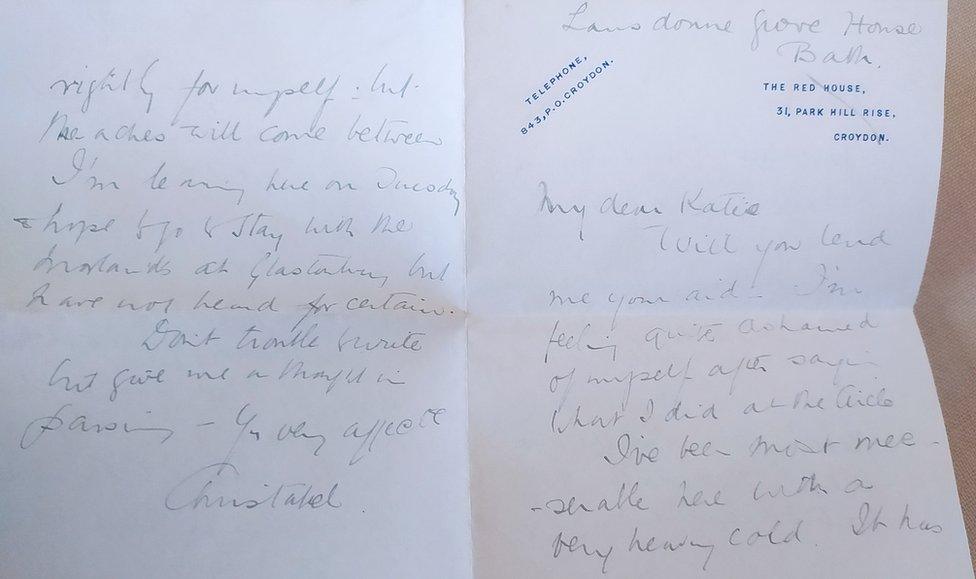 Lansdowne Grove House
Bath.
TELEPHONE,
843, P.O. CROYDON.
THE RED HOUSE,
31, PARK HILL RISE,
CROYDON.
My dear Katie
Will you lend
me your aid - I'm
feeling quite ashamed
of myself after saying
what I did at the Circle
I've been most mee -
- serable here with a
very heavy cold. It has
rightly for myself - but
the aches will come between
I'm leaving here on Tuesday
& hope to go & stay with the
at Glastonbury but
have not heard for certain.
Don't trouble to write
but give me a thought in
passing - Yr very affecte
Christabel.